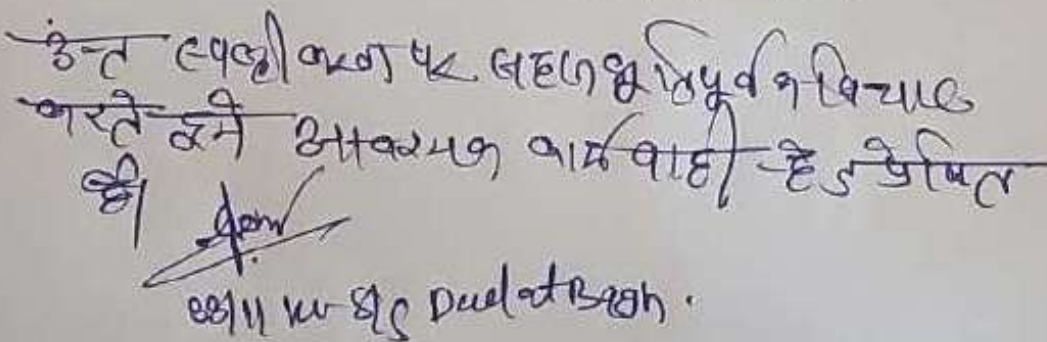 उक्त स्पष्टीकरण पर सहानुभूतिपूर्वक विचार
करते हुये आवश्यक कार्यवाही हेतु प्रेषित
है।
33/11 kv S/S Daulat Bagh.